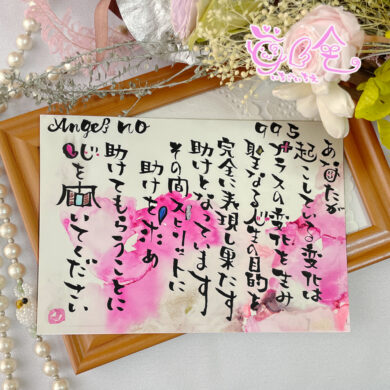 Angel no
995
あなたが
起こしている変化は
プラスの変化を生み
聖なる人生の目的を
完全に表現し果たす
助けとなっています
その間スピリットに
助けを求め
助けてもらうことに
心を開いてください